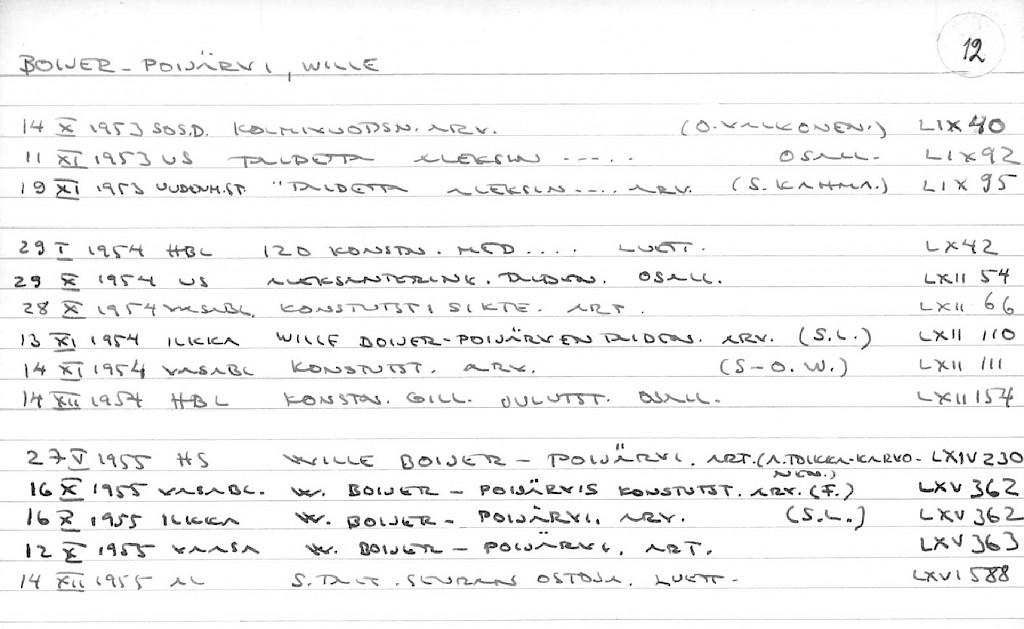 12
BOIJER-POIJÄRVI, WILLE
14 X 1953 SOS.D. KOLMIVUOTISN. ARV. (O. VALKONEN.) LIX 40
11 XI 1953 US TAIDETTA ALEKSIN ---.. OSALL. LIX 92
19 XI 1953 UUDENM.ST. "TAIDETTA ALEKSIN.... ARV. (S. KAHMA.) LIX 95
29 I 1954 HBL 120 KONSTN. MED .... LUETT. LX 42
29 X 1954 US ALEKSANTERINK. TAIDEN. OSALL. LXII 54
28 X 1954 VASABL. KONSTUTST I SIKTE. ART. LXII 66
13 XI 1954 ILKKA WILLE BOIJER-POIJÄRVEN TAIDEN. ARV. (S.L.) LXII 110
14 XI 1954 VASABL KONSTUTST. ARV. (S-O.W.) LXII 111
14 XII 1954 HBL KONSTN. GILL. JULUTST. OSALL. LXII 154
27 V 1955 HS WILLE BOIJER - POIJÄRVI. ART. (A. TOIKKA-KARVO- LXIV 230
NEN.)
16 X 1955 VASABL. W. BOIJER - POIJÄRVIS KONSTUTST. ARV. (F.) LXV 362
16 X 1955 ILKKA W. BOIJER - POIJÄRVI. ARV. (S.L.) LXV 362
12 X 1955 VAASA W. BOIJER - POIJÄRVI. ART. LXV 363
14 XII 1955 AL S. TAIT. SEURAN OSTOJA. LUETT. LXVI 588